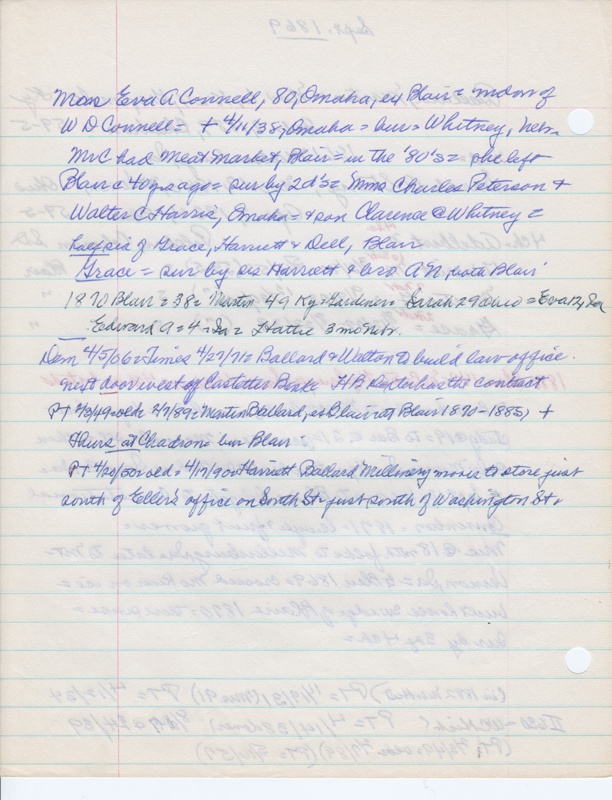 Mrs Eva A Connell, 80, Omaha, ex Blair = widow of
W D Connell = + 4/11/38, Omaha = bur = Whitney, Nebr.
Mr C had Meat Market, Blair = in the '80's = she left
Blair c 40 y s ago = sur by 2 d's = Mmes Charles Peterson +
Walter C Harris, Omaha = + son Clarence @ Whitney =
half sis of Grace, Harriett + Dell, Blair
Grace = sur by sis Harriett + bro A N, both Blair
1870 Blair = 38 = Martin 49 Ky = Gardener = Sarah 29 Ohio = Eva 12, Ia
Edward A = 4 = Ia = Hattie 3 months.
Dem 4/5/06 = Times 4/27/71 = Ballard & Walton to build law office
next door west of Castetter Bank H B Dexter has the contract
PT 2/3/49 = old = 2/7/89 = Martin Ballard, ex Blair at Blair 1870-1885, +
Thurs at Chadron = bur Blair.
PT 4/20/50 = old = 4/17/90 = Harriett Ballard Millinery moves to store just
south of Eller's office on South St = just south of Washington St.